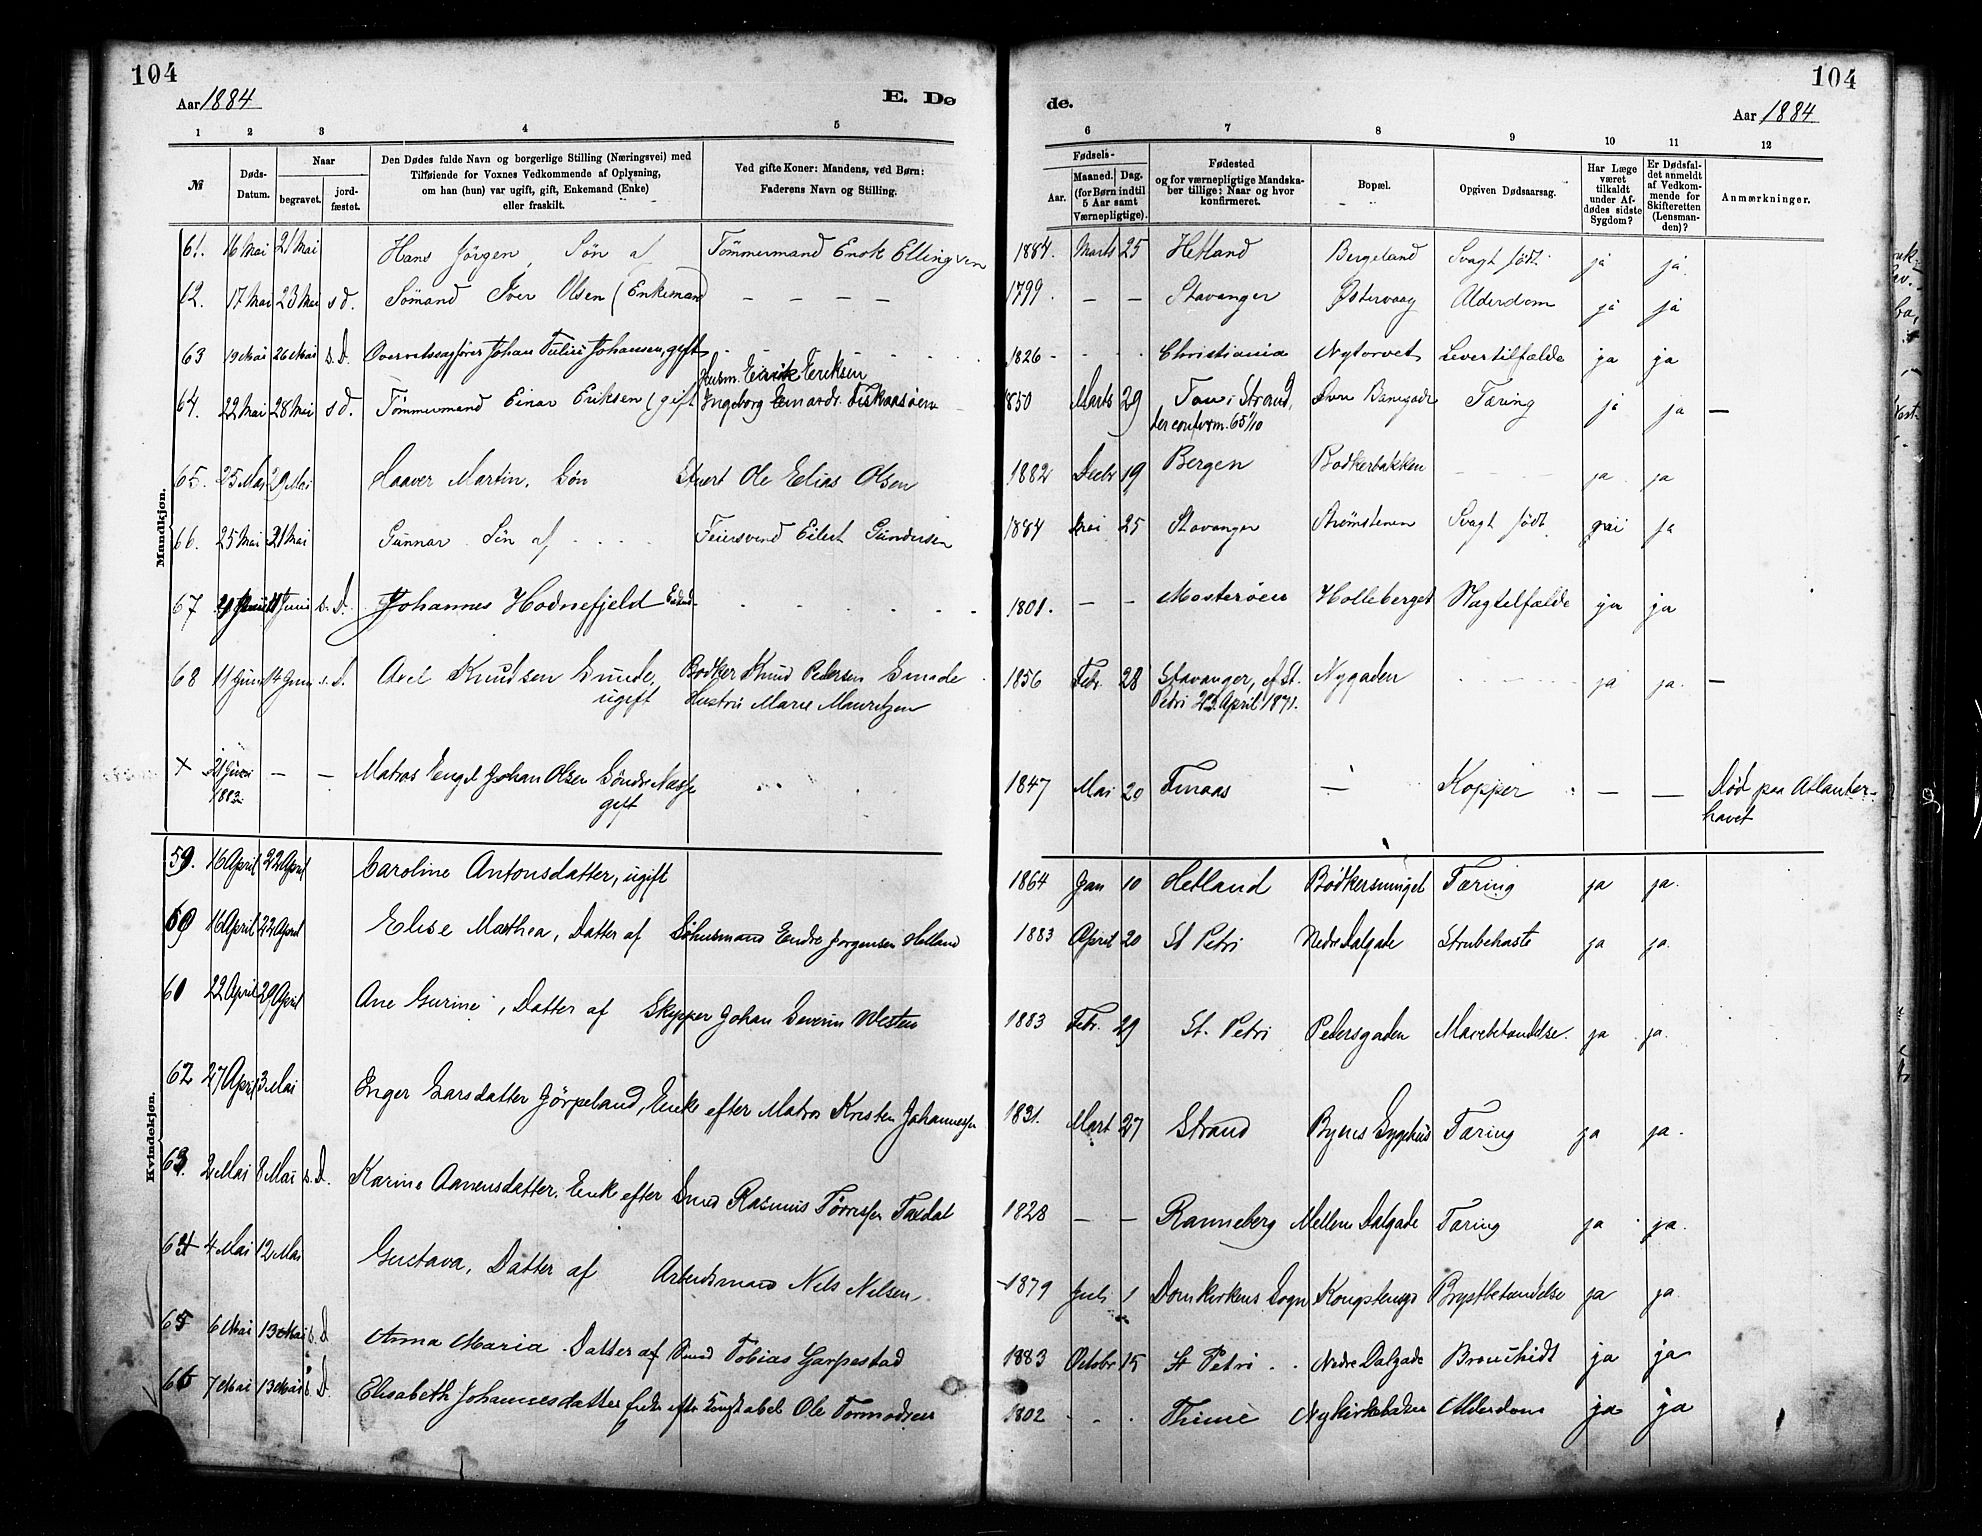 104
104
Aar 1884
E. Dø
de.
Aar 1884
1 2 3 4 5 6 7 8 9 10 11 12
№
Døds-Datum.
Naar
begravet.
jord-fæstet.
Den Dødes fulde Navn og borgerlige Stilling (Næringsvei) med
Tilføiende for Voxnes Vedkommende af Oplysning,
om han (hun) var ugift, gift, Enkemand (Enke)
eller fraskilt.
Ved gifte Koner: Mandens, ved Børn:
Faderens Navn og Stilling.
Fødsels-
Aar.
Maaned. Dag.
(for Børn indtil
5 Aar samt
Værnepligtige).
Fødested
og for værnepligtige Mandska-
ber tillige: Naar og hvor
konfirmeret.
Bopæl.
Opgiven Dødsaarsag.
Har Læge
været
tilkaldt
under Af-
dødes sidste
Sygdom?
Er Dødsfal-
det anmeldt
af Vedkom-
mende for
Skifteretten
(Lensman-
den)?
Anmærkninger.
Mandkjøn.
61. 16 Mai 21 Mai Hans Jörgen, Sön af Tömmermand Enok Ellingsen 1884. Marts 25 Hetland Bergeland Svagt födt ja ja.
62. 17 Mai 23 Mai s d. Sömand Iver Olsen (Enkemand — — — — 1799. — — Stavanger Østervaag Alderdom ja ja
63 19 Mai 26 Mai s. D. Overretssagförer Johan Johansen, gift 1826 Christiania Nytorvet Levertilfælde ja ja
Husm. Eirik Eriksen
64. 22 Mai 28 Mai s d. Tömmermand Einar Eriksen (gift Ingeborg 1850 Marts 29 Tau i Strand, Øvre Banegade Tæring ja ja —
der confirm. 65 1/10
65. 25 Mai 29 Mai Haaver Martin, Sön Stuert Ole Elias Olsen 1882 Decbr 19 Bergen Bödkerbakken — — ja ja
66. 25 Mai 31 Mai Gunnar Sön af Feiersvend Eilert Gundersen 1884 Mai 25 Stavanger Strømstenen Svagt födt nei ja
67 Juni s. D. Johannes Hodnefjeld 1801. — — Mosteröen Holleberget Slagtilfælde ja ja
68 11 Juni 14 Juni s. D. Axel Knudsen Gmide, Bødker Knud Pedersen Gmide 1856 Febr. 28 Stavanger, cf St. Nygaden ja ja. —
ugift Hustru Marie Mauritzen Petri 23 April 1871.
+ 21 Juni — — Matros Engel Johan Olsen Söndre 1847 Mai 20 — Kopper — — Død paa Atlanter-
1883 gift havet
Kvindekjøn.
59. 16 April 22 April Caroline Antonsdatter, ugift 1864 Jan 10 Hetland Bödkersmuget Tæring ja ja.
60 16 April 22 April Elise Marthea, Datter af Endre Jorgensen Helland 1883 April 20 St Petri Nedre Dalgade Strubehoste ja ja.
61 22 April 29 April Ane Gurine, Datter af Skipper Johan Severin Westen 1883 Febr. 29 St. Petri Pedersgaden Mavebetændelse. ja ja.
62 27 April 3 Mai Inger Larsdatter Jörpeland, Enke efter Matros Kristen Johannesen 1831. Mart 27 Strand Byens Sygehus Tæring ja ja.
63. 2 Mai 8 Mai s. D. Karine Aanensdatter, Enke efter Smed Rasmus Törresen 1828 — — Ranneberg Mellem Dalgade Tæring ja ja.
64 4 Mai 12 Mai Gustava, Datter af Arbeidsmand Nils Nilsen 1879 Juli 1 Domkirkens Sogn Kongstensgd Brystbetændelse ja ja.
65 6 Mai 13 Mai s. D Anna Maria. Datter af Smed Tobias Garpestad 1883 Octobr 15 St Petri Nedre Dalgade Bronchidt ja ja
66 7 Mai 13 Mai s. D. Elisabeth Johannesdatter Enke efter Ole Tormodsen 1802 Thime Nykirkebakken Alderdom ja ja